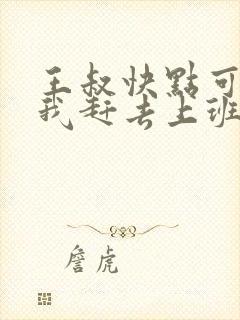 王叔快點可
我赶去上班
詹虎